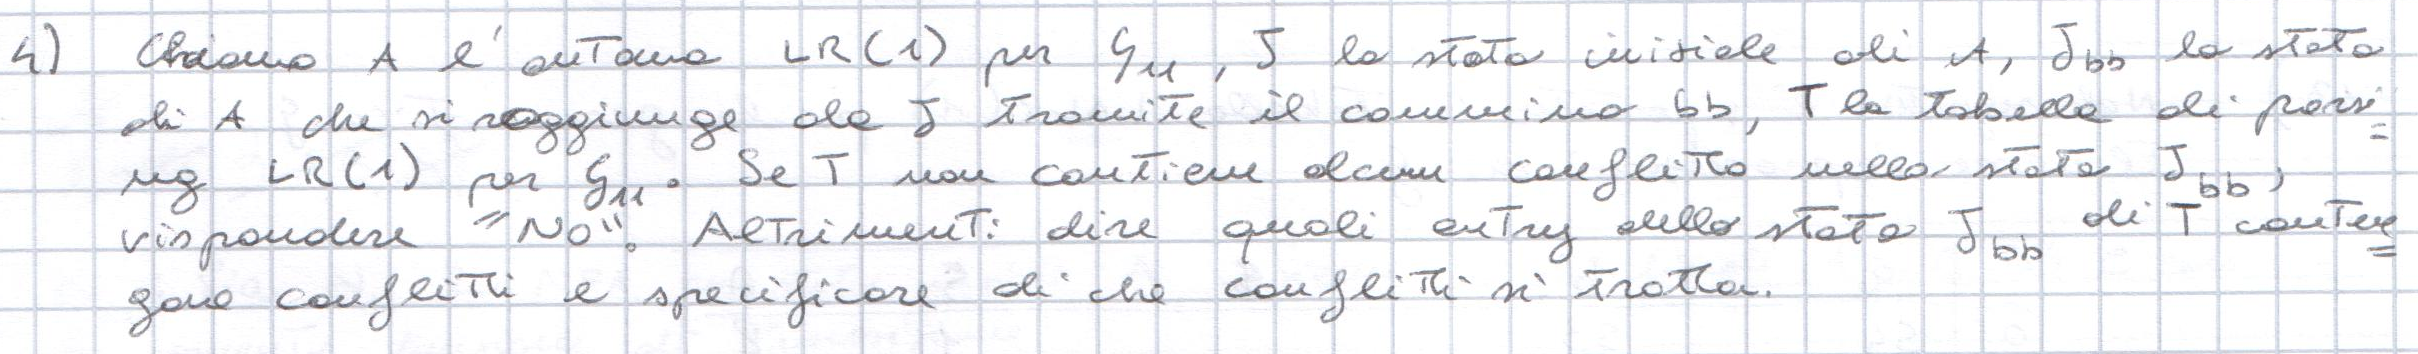 4) Chiamo A l'automa LR(1) per G₁₁, J lo stato iniziale di A, J_bb lo stato
di A che si raggiunge da J tramite il cammino bb, T la tabella di parsi=
ng LR(1) per G₁₁. Se T non contiene alcun conflitto nello stato J_bb,
rispondere "No". Altrimenti dire quali entry dello stato J_bb di T conten=
gono conflitti e specificare di che conflitti si tratta.